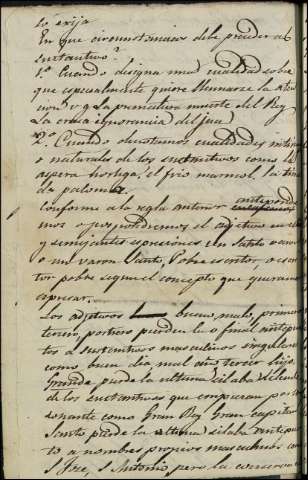 lo exija
En que circunstancias debe preceder al
sustantivo?
1.º Cuando designa una cualidad sobre
que especialmente quiere llamarse la aten
cion v g La prematura muerte del Rey
La crasa ignorancia del juez
2.º Cuando denotamos cualidades
o naturales de los sustantivos como la
aspera hortiga, el frio marmol la
da paloma.
Conforme a la regla anterior antepondre
mos o pospondremos el adjetivo en
y semejantes espresiones en Santo varon
o un varon Santo, Pobre escritor, o escri
tor pobre segun el concepto que queramos
espresar.
Los adjetivos bueno, malo, primero
tercero, postrero pierden la o final antepues
tos a sustantivos masculinos singulares
como buen dia mal año tercer hijo.
Grande pierde la ultima silaba delante
de los sustantivos que empiezan por con
sonante como Gran Rey Gran capitan
Santo pierde la ultima silaba antepues
to a nombres propios masculinos como
S Jose, S Antonio pero la conserva